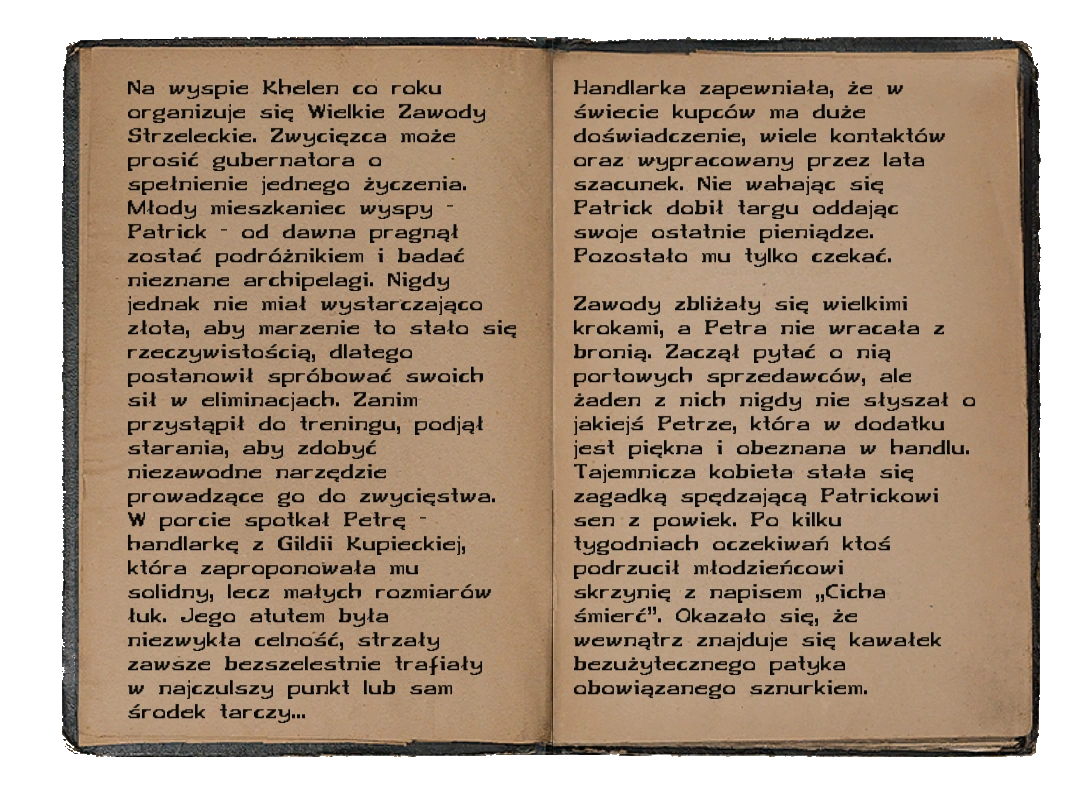 Na wyspie Khelen co roku
organizuje się Wielkie Zawody
Strzeleckie. Zwycięzca może
prosić gubernatora o
spełnienie jednego życzenia.
Młody mieszkaniec wyspy -
Patrick - od dawna pragnął
zostać podróżnikiem i badać
nieznane archipelagi. Nigdy
jednak nie miał wystarczająco
złota, aby marzenie to stało się
rzeczywistością, dlatego
postanowił spróbować swoich
sił w eliminacjach. Zanim
przystąpił do treningu, podjął
starania, aby zdobyć
niezawodne narzędzie
prowadzące go do zwycięstwa.
W porcie spotkał Petrę -
handlarkę z Gildii Kupieckiej,
która zaproponowała mu
solidny, lecz małych rozmiarów
łuk. Jego atutem była
niezwykła celność, strzały
zawsze bezszelestnie trafiały
w najczulszy punkt lub sam
środek tarczy...
Handlarka zapewniała, że w
świecie kupców ma duże
doświadczenie, wiele kontaktów
oraz wypracowany przez lata
szacunek. Nie wahając się
Patrick dobił targu oddając
swoje ostatnie pieniądze.
Pozostało mu tylko czekać.

Zawody zbliżały się wielkimi
krokami, a Petra nie wracała z
bronią. Zaczął pytać o nią
portowych sprzedawców, ale
żaden z nich nigdy nie słyszał o
jakiejś Petrze, która w dodatku
jest piękna i obeznana w handlu.
Tajemnicza kobieta stała się
zagadką spędzającą Patrickowi
sen z powiek. Po kilku
tygodniach oczekiwań ktoś
podrzucił młodzieńcowi
skrzynię z napisem „Cicha
śmierć”. Okazało się, że
wewnątrz znajduje się kawałek
bezużytecznego patyka
obowiązanego sznurkiem.